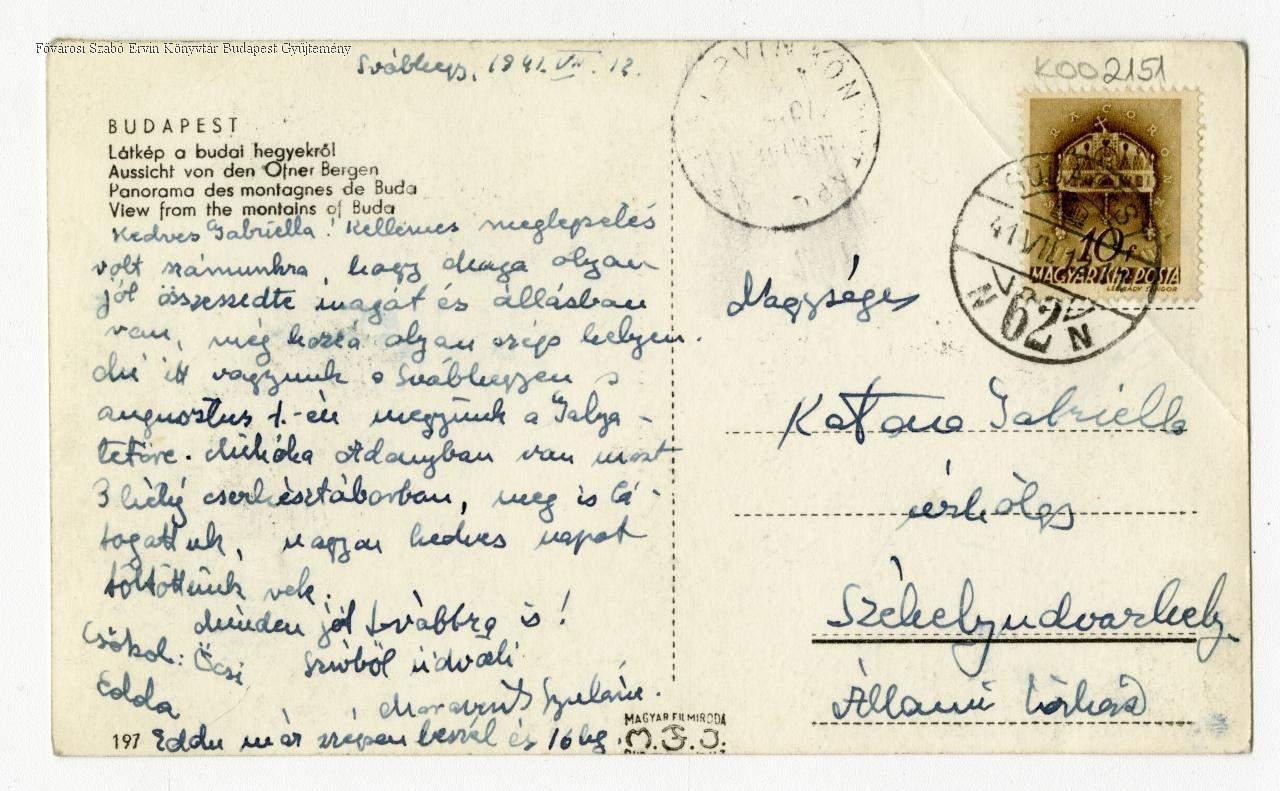 Fővárosi Szabó Ervin Könyvtár Budapest Gyűjtemény
Svábhegy, 1941. VII. 12.
K002151
BUDAPEST
Látkép a budai hegyekről
Aussicht von den Ofner Bergen
Panorama des montagnes de Buda
View from the montains of Buda
Kedves Gabriella! Kellemes meglepetés
volt számunkra, hogy maga olyan
jól összeszedte magát és állásban
van, még hozzá olyan szép helyen.
Mi itt vagyunk a Svábhegyen s
augusztus 1.-én megyünk a Galya-
tetőre. Mikóka Adonyban van most
3 hétig cserkésztáborban, meg is lá-
togattuk, nagyon kedves napot
töltöttünk vele.
Minden jót továbbra is!
Csókol: Öcsi
Szívből üdvözli
Edda
197 Edda már szépen beszél és 16 kg.
MAGYAR FILMIRODA
M.F.I.
10f
MAGYAR KIR. POSTA
LÉGRÁDY SÁNDOR
41 VII
62
N N
Nagyságos
Katona Gabriella
úrhölgy
Székelyudvarhely
Állami kórház